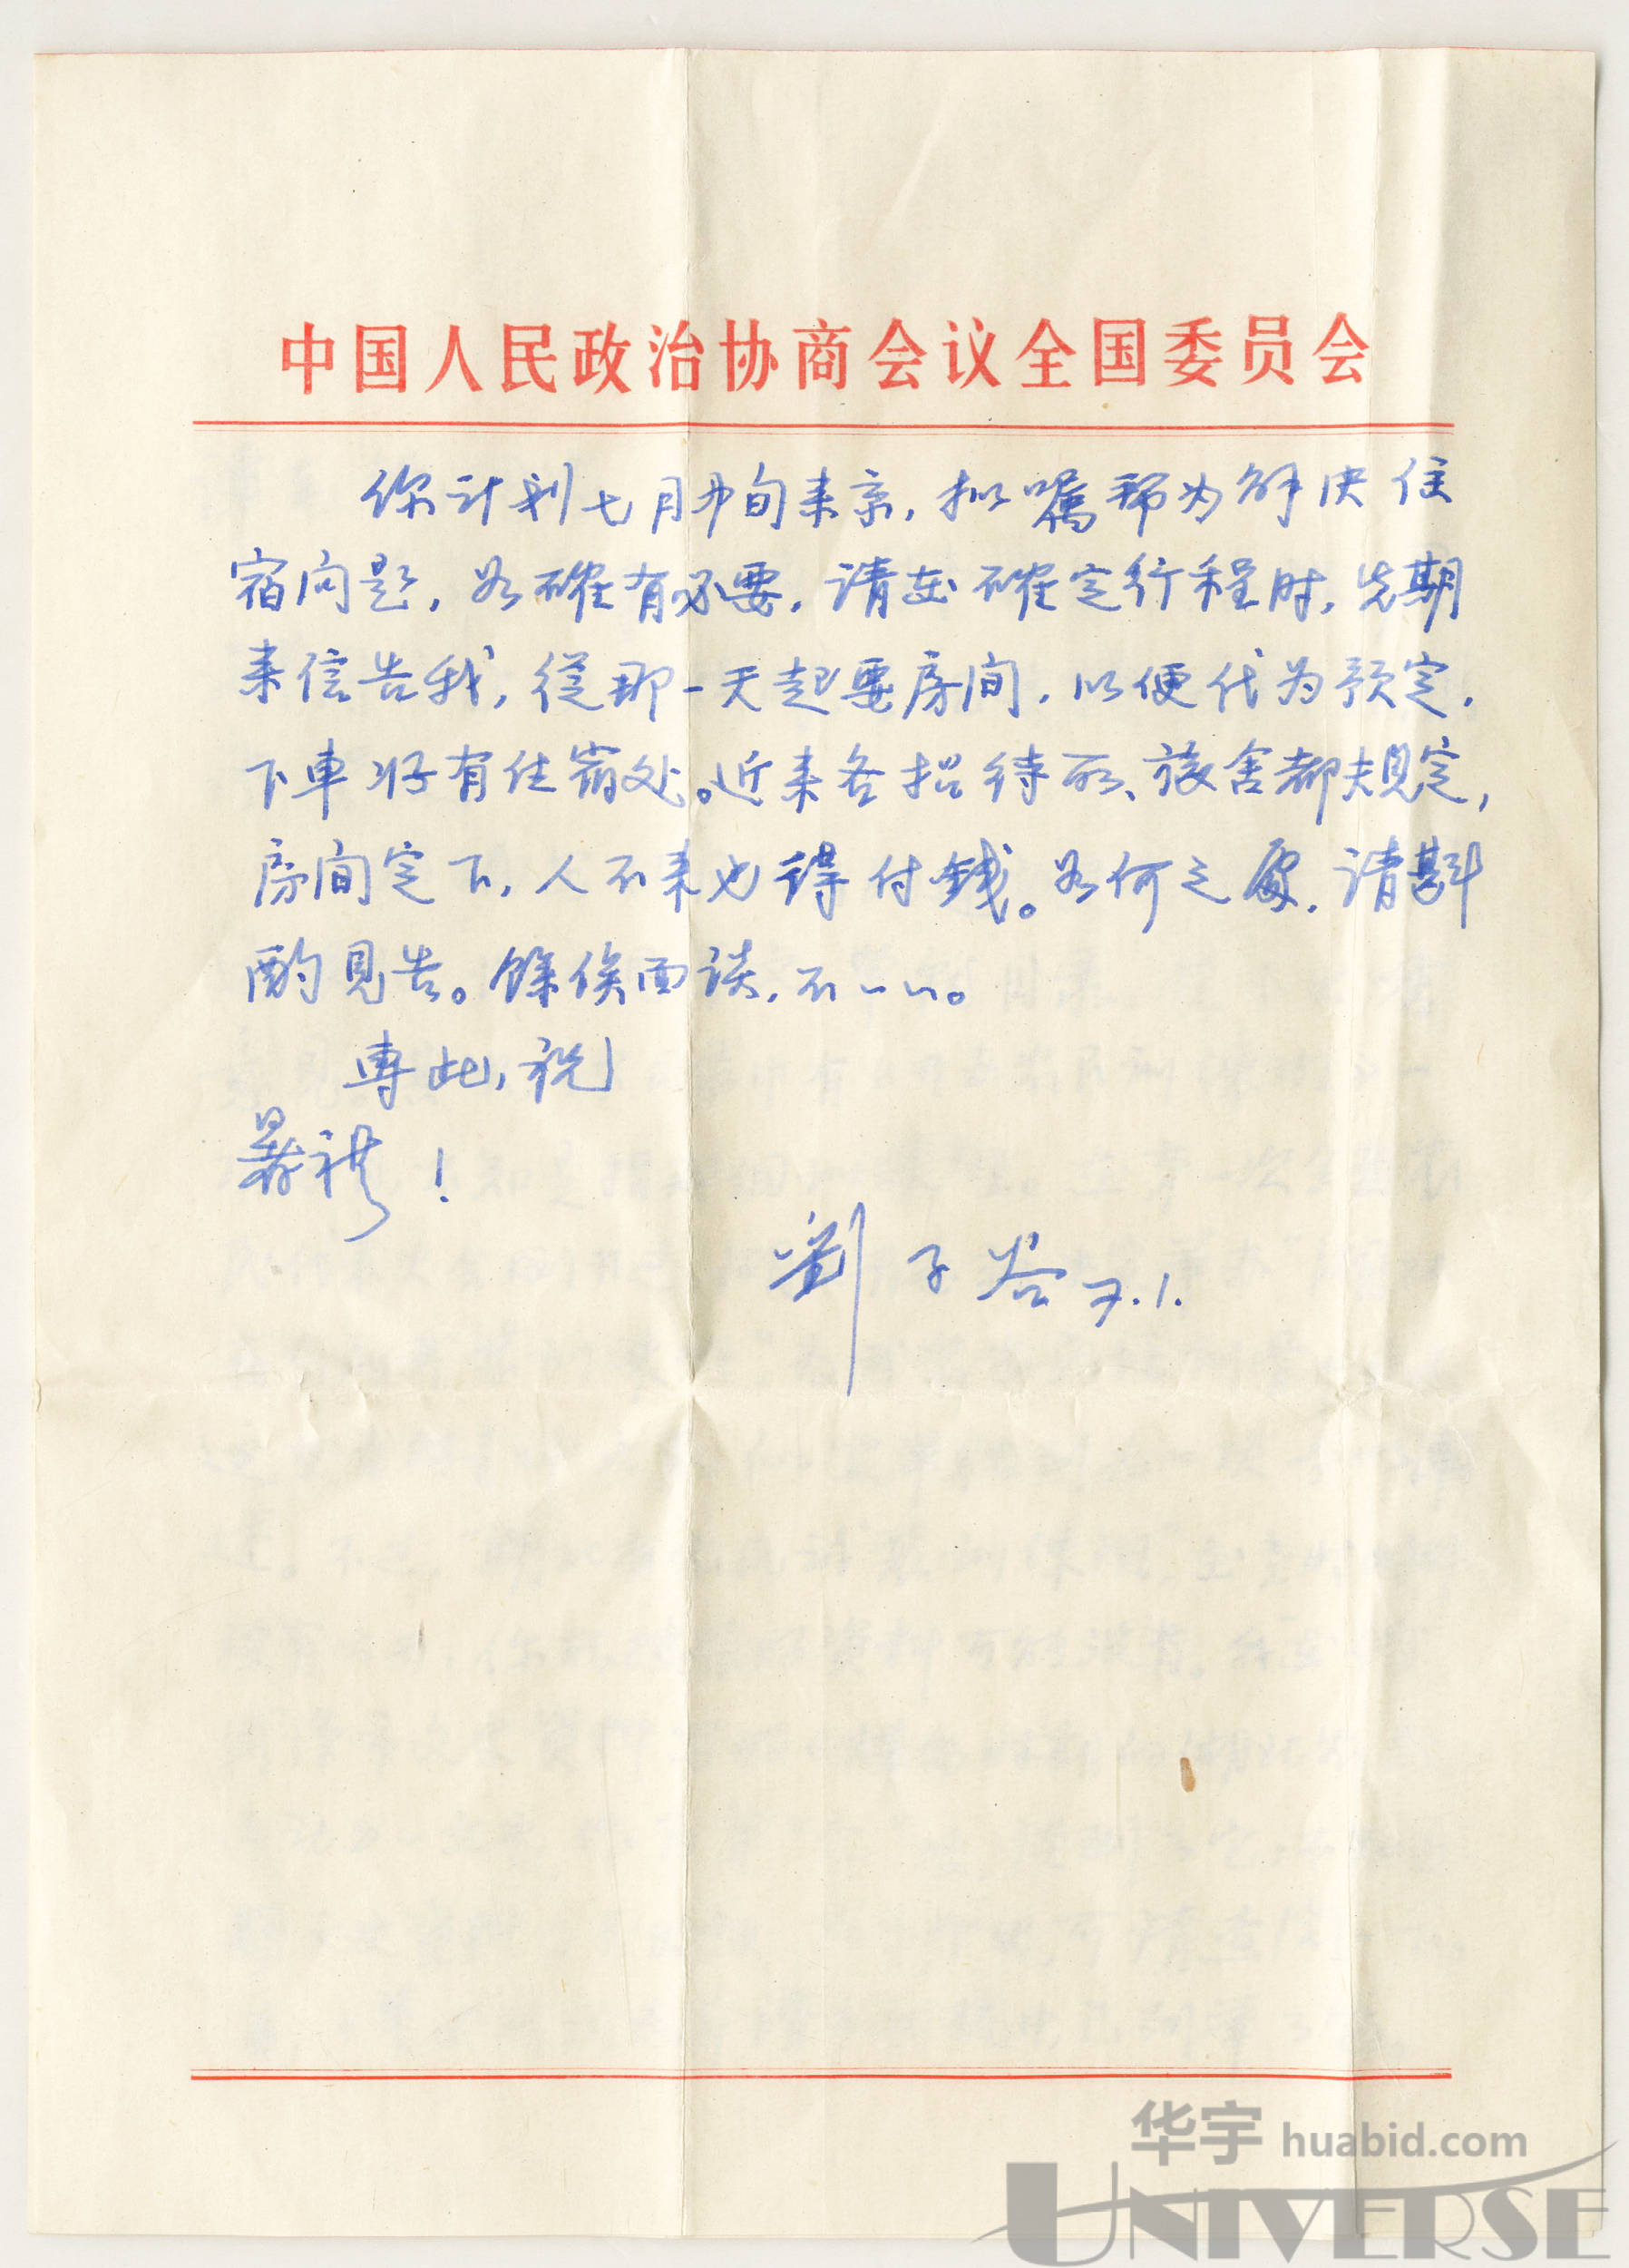 中国人民政治协商会议全国委员会
你计划七月中旬来京，拟嘱帮为解决住
宿问题，如確有必要，请在確定行程时，先期
来信告我，從那一天起要房间，以便代为预定，
下車将有住宿处。近来各招待所、旅舍都規定，
房间定下，人不来也得付錢。如何之處，请斟
酌見告。餘俟面谈，不一一。
專此，祝
暑祺！
劉子谷 7.1.
华宇 huabid.com
UNIVERSE